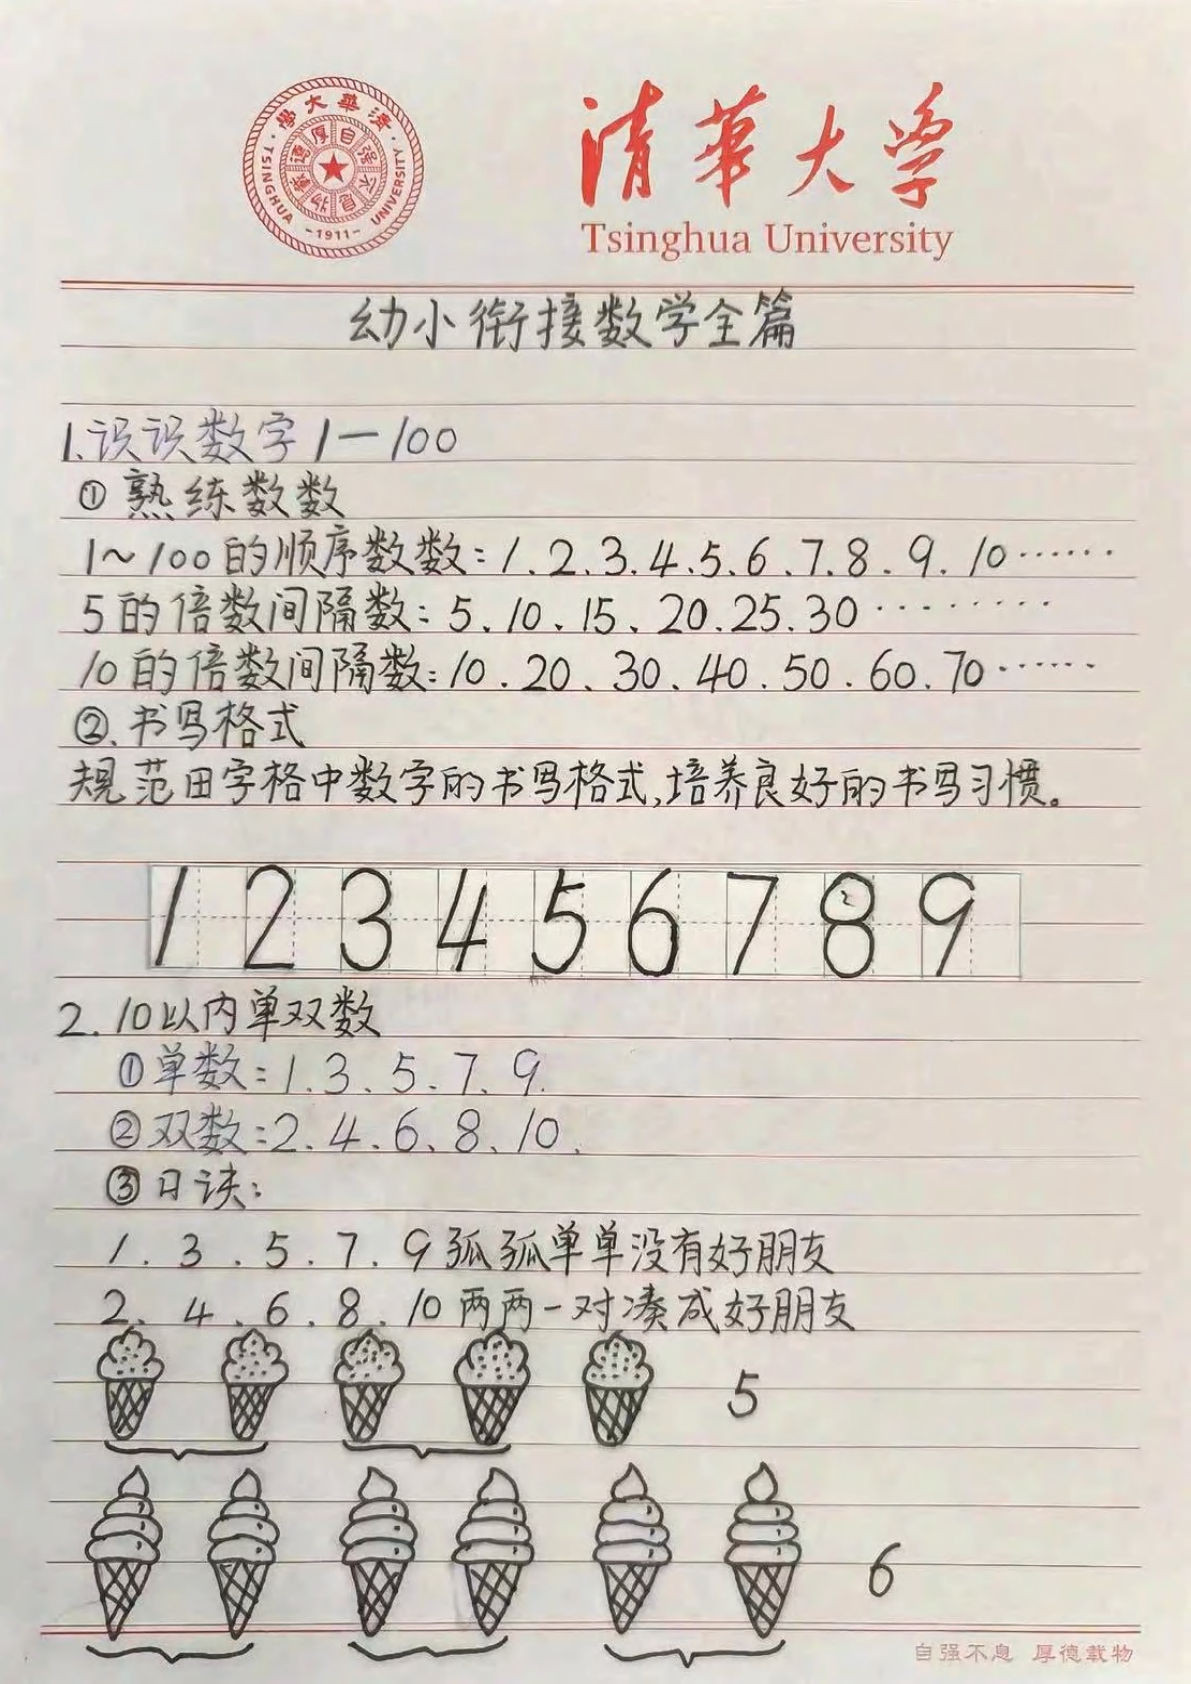 學大華清
自强不息厚德載物
TSINGHUA UNIVERSITY
-1911-
清華大学
Tsinghua University
幼小衔接数学全篇
1.识识数字1—100
① 熟练数数
1~100的顺序数数:1.2.3.4.5.6.7.8.9.10……
5的倍数间隔数:5、10、15、20.25.30………
10的倍数间隔数:10.20、30、40.50.60.70……
②.书写格式
规范田字格中数字的书写格式,培养良好的书写习惯。
1 2 3 4 5 6 7 8 9
2.10以内单双数
①单数:1.3、5.7、9.
②双数:2.4.6、8、10.
③日读:
1.3.5.7.9孤孤单单没有好朋友
2、4.6.8.10两两一对凑成好朋友
5
6
自强不息 厚德載物